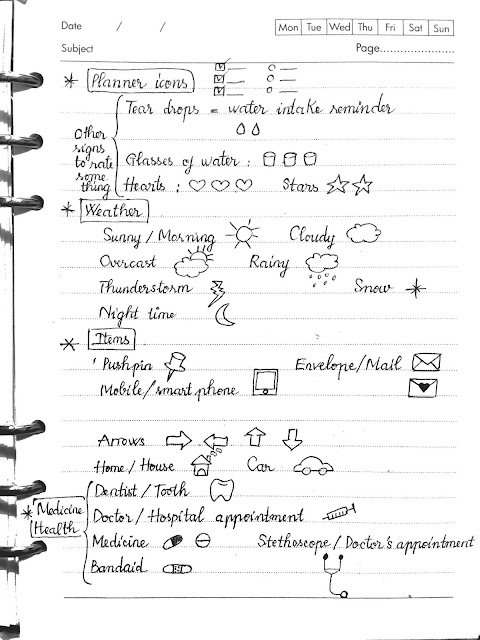 Date / /
Mon Tue Wed Thu Fri Sat Sun
Subject
Page......................
Planner icons
Tear drops = water intake reminder
Other signs to rate some thing
Glasses of water :
Hearts : Stars
Weather
Sunny / Morning Cloudy
Overcast Rainy
Thunderstorm Snow
Night time
Items
Pushpin Envelope/Mail
Mobile/smart phone
Arrows
Home / House Car
Medicine Health
Dentist / Tooth
Doctor / Hospital appointment
Medicine Stethoscope / Doctor's appointment
Bandaid